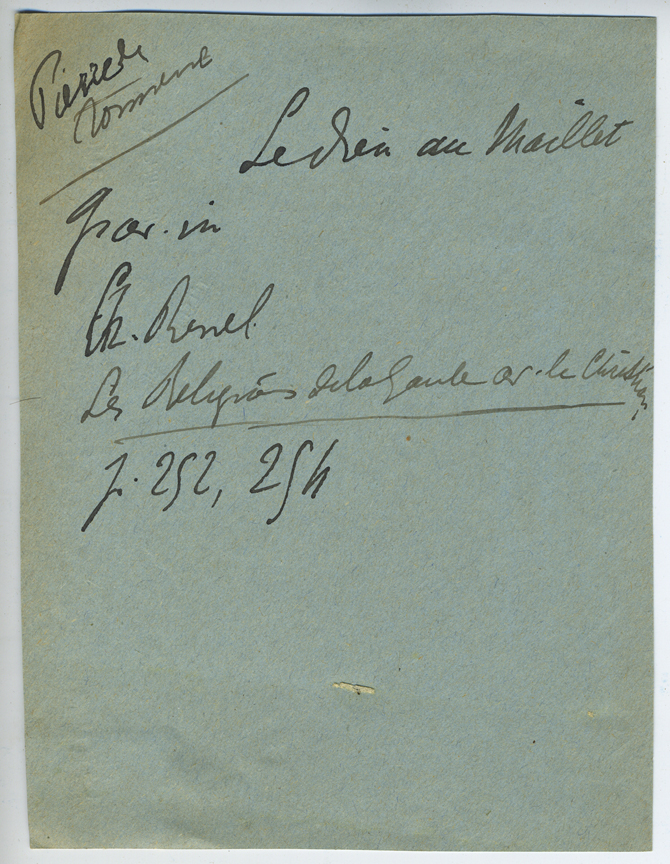 Pierre de
tonnerre
Le dieu au Maillet
Grav. in
Ch. Renel
Les Religions de la Gaule av. le Christian.
p. 252, 254